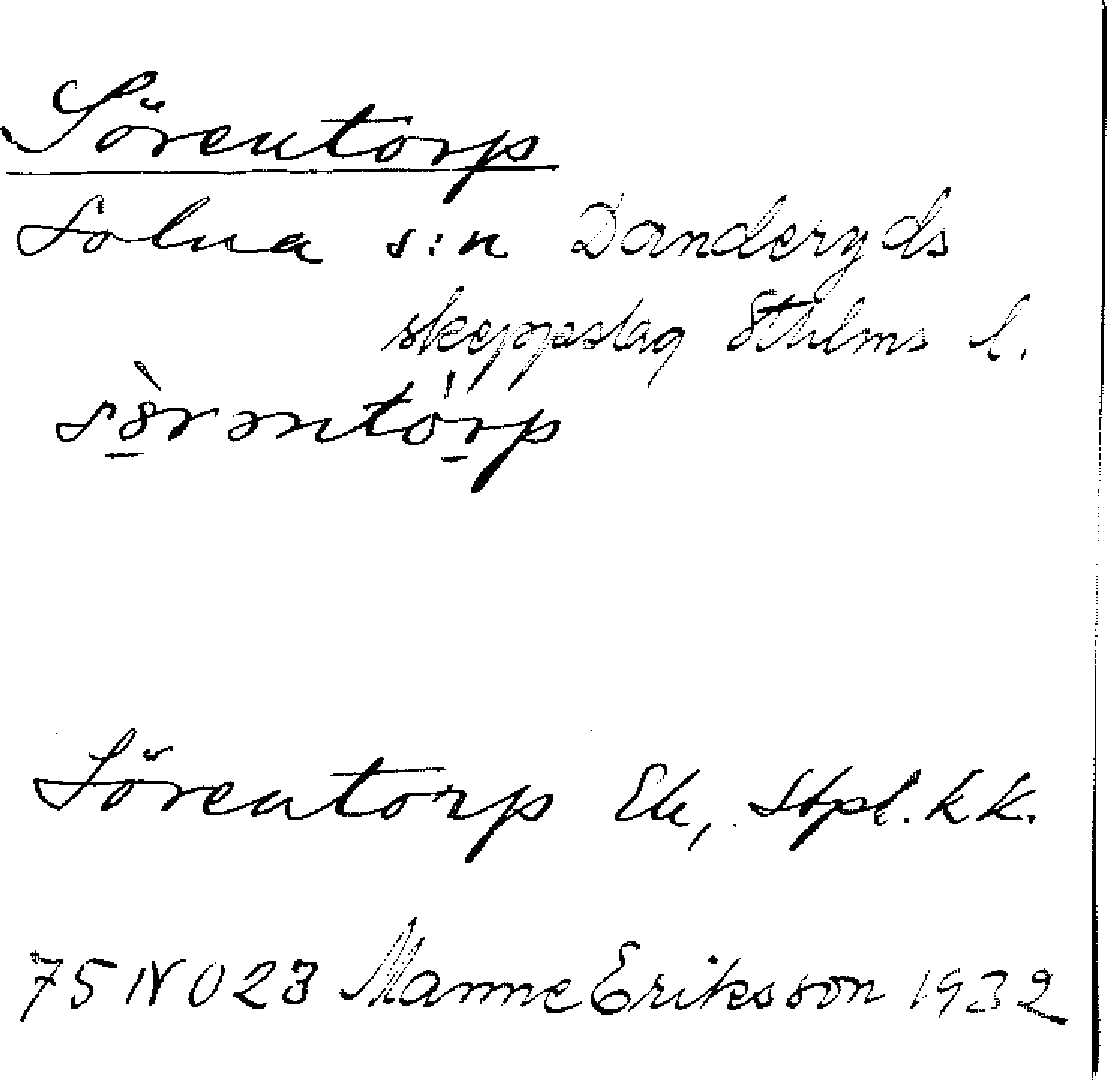 Sörentorp
Solna s:n Danderyds
skeppslag Sthlms l.
sörəntorp
Sörentorp Ek,
75 NO 23 Manne Eriksson 1932